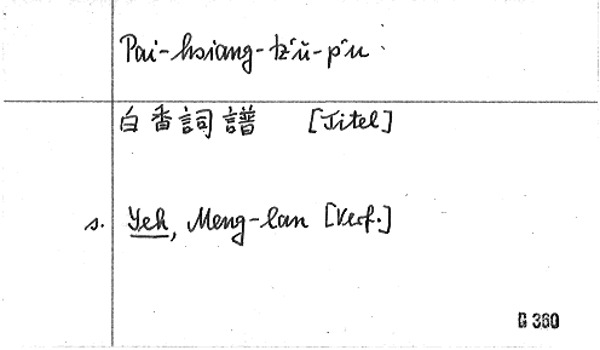 Pai-hsiang-tz'ŭ-p'u
白香詞譜 [Titel]
s. Yeh, Meng-lan [Verf.]
G 360